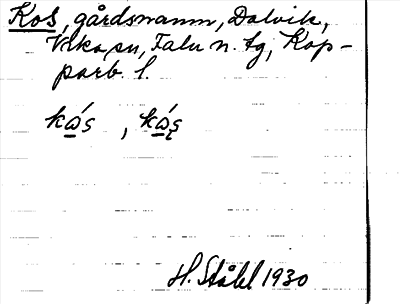 Kos, gårdsnamn, Dalvik,
Vika sn, Falu n. tg, Kop-
parb. l.
kώ̲s , kώ̲s̨
H. Ståhl 1930